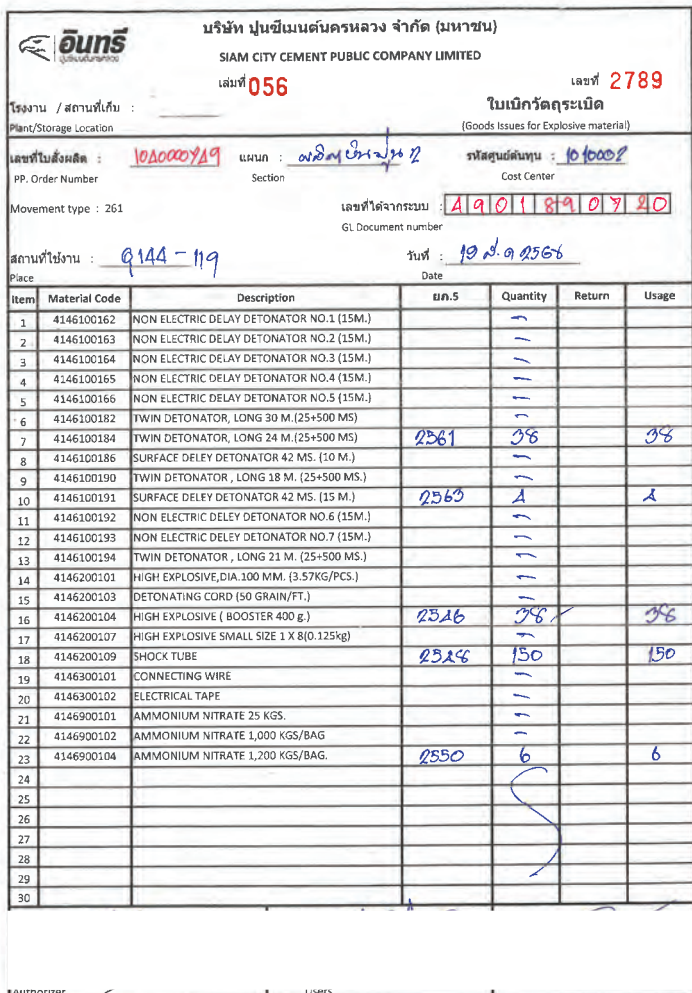 อินทรี
ปูนซีเมนต์นครหลวง
บริษัท ปูนซีเมนต์นครหลวง จำกัด (มหาชน)
SIAM CITY CEMENT PUBLIC COMPANY LIMITED
เล่มที่ 056 เลขที่ 2789
โรงงาน / สถานที่เก็บ : ใบเบิกวัตถุระเบิด
Plant/Storage Location (Goods Issues for Explosive material)
เลขที่ใบสั่งผลิต : แผนก : รหัสศูนย์ต้นทุน : 1010002
PP. Order Number Section Cost Center
Movement type : 261 เลขที่ได้จากระบบ : 4901890720
GL Document number
สถานที่ใช้งาน : Q144-119 วันที่ : 19 ส.ค 2568
Place Date
Item Material Code Description ยภ.5 Quantity Return Usage
1 4146100162 NON ELECTRIC DELAY DETONATOR NO.1 (15M.) -
2 4146100163 NON ELECTRIC DELAY DETONATOR NO.2 (15M.) -
3 4146100164 NON ELECTRIC DELAY DETONATOR NO.3 (15M.) -
4 4146100165 NON ELECTRIC DELAY DETONATOR NO.4 (15M.) -
5 4146100166 NON ELECTRIC DELAY DETONATOR NO.5 (15M.) -
6 4146100182 TWIN DETONATOR, LONG 30 M.(25+500 MS) -
7 4146100184 TWIN DETONATOR, LONG 24 M.(25+500 MS) 2561 38 38
8 4146100186 SURFACE DELEY DETONATOR 42 MS. (10 M.) -
9 4146100190 TWIN DETONATOR , LONG 18 M. (25+500 MS.) -
10 4146100191 SURFACE DELEY DETONATOR 42 MS. (15 M.) 2563 4 4
11 4146100192 NON ELECTRIC DELEY DETONATOR NO.6 (15M.) -
12 4146100193 NON ELECTRIC DELEY DETONATOR NO.7 (15M.) -
13 4146100194 TWIN DETONATOR , LONG 21 M. (25+500 MS.) -
14 4146200101 HIGH EXPLOSIVE,DIA.100 MM. (3.57KG/PCS.) -
15 4146200103 DETONATING CORD (50 GRAIN/FT.) -
16 4146200104 HIGH EXPLOSIVE ( BOOSTER 400 g.) 2546 38 38
17 4146200107 HIGH EXPLOSIVE SMALL SIZE 1 X 8(0.125kg) -
18 4146200109 SHOCK TUBE 2528 150 150
19 4146300101 CONNECTING WIRE -
20 4146300102 ELECTRICAL TAPE -
21 4146900101 AMMONIUM NITRATE 25 KGS. -
22 4146900102 AMMONIUM NITRATE 1,000 KGS/BAG -
23 4146900104 AMMONIUM NITRATE 1,200 KGS/BAG. 2550 6 6
24
25
26
27
28
29
30
Authorizer Users